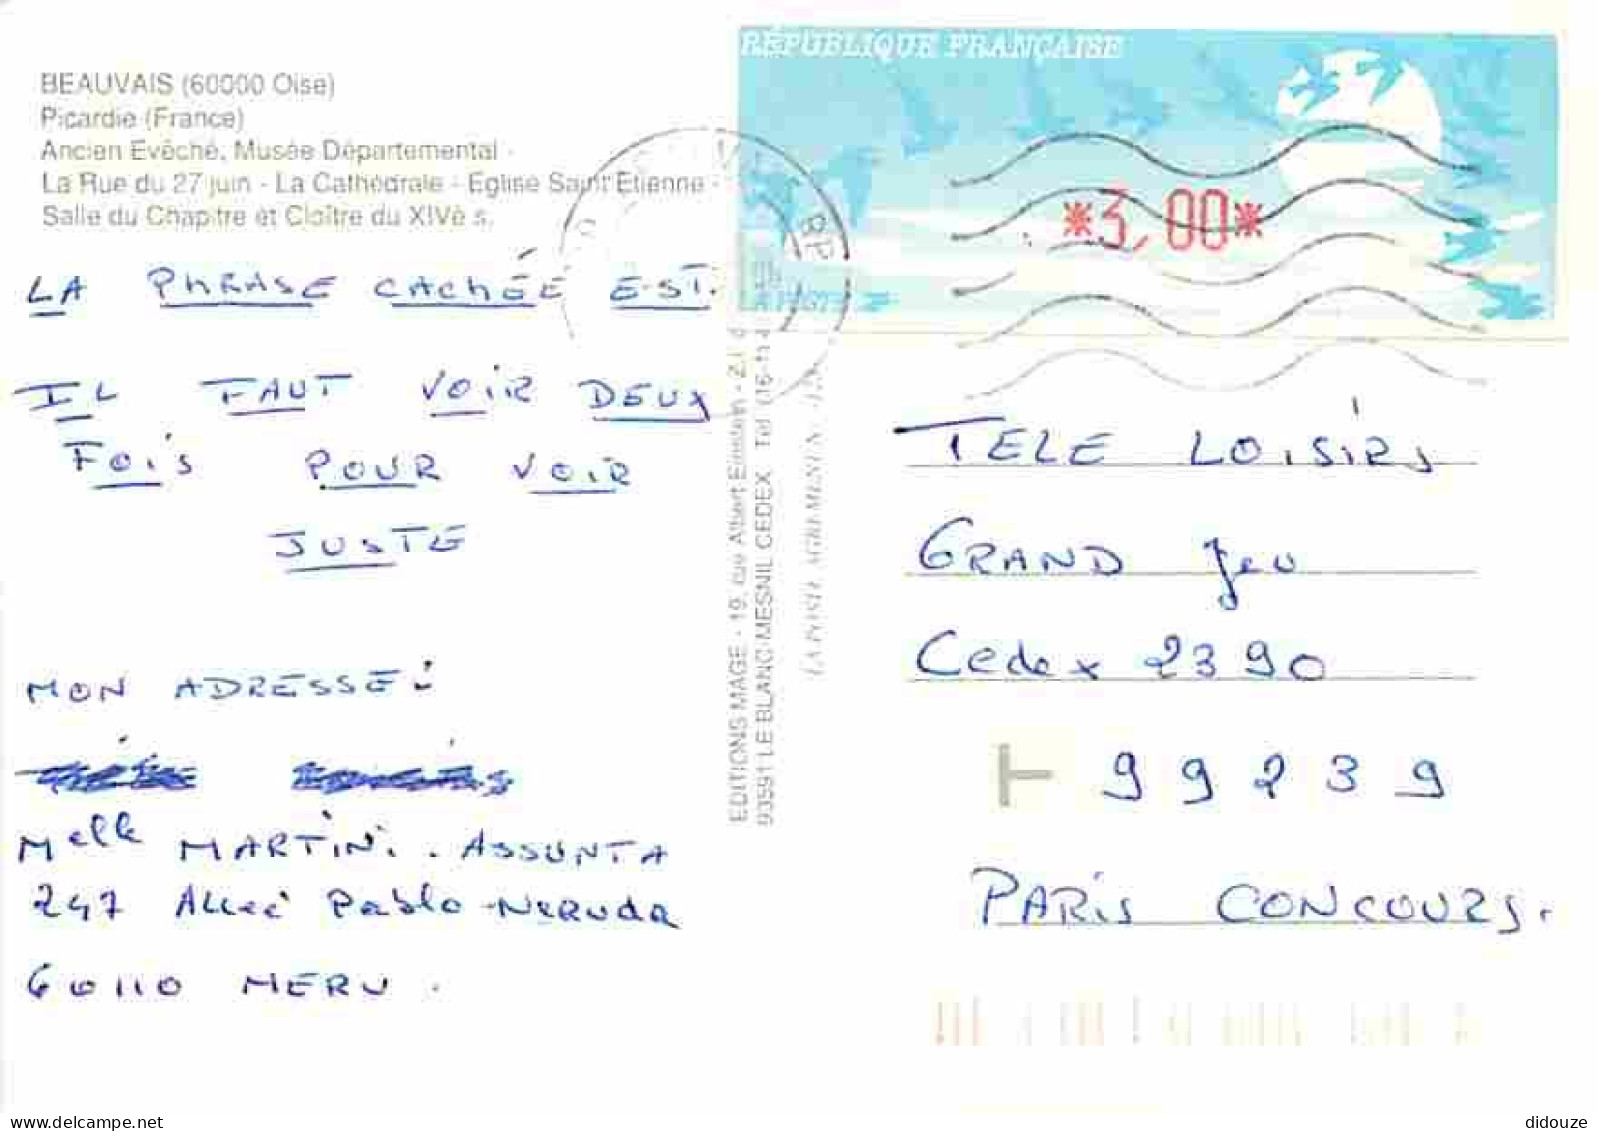 RÉPUBLIQUE FRANÇAISE
BEAUVAIS (60000 Oise)
Picardie (France)
Ancien Evêché, Musée Départemental -
La Rue du 27 juin - La Cathédrale - Eglise Saint Etienne -
Salle du Chapitre et Cloître du XIVè s.
*3,00*
LA PHRASE CACHÉE EST.
IL FAUT VOIR DEUX
FOIS POUR VOIR
JUSTE
MON ADRESSE:
Melle MARTINI. ASSUNTA
247 Allée Pablo-NERUDA
60110 MERU.
EDITIONS MAGE - 19, rue Albert Einstein - Z.I.
93591 LE BLANC-MESNIL CEDEX Tél (16-1)
LA POSTE AGREMENT N°
TELE LOISIRS
GRAND Jeu
Cedex 2390
99239
PARIS CONCOURS.
didouze